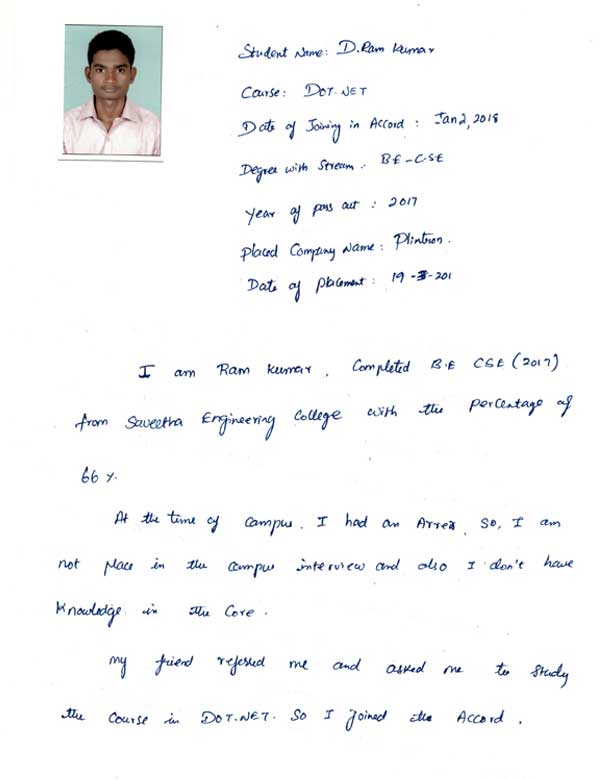 Student Name: D. Ram Kumar
Course: DOT.NET
Date of Joining in Accord : Jan 2, 2018
Degree with Stream : B.E - C.S.E
Year of pass out : 2017
Placed Company Name : Plintron.
Date of placement : 19 -3-201
I am Ram Kumar, Completed B.E CSE (2017)
from Saveetha Engineering College with the percentage of
66 %.
At the time of campus. I had an Arrea, So, I am
not place in the campus interview and also I don't have
knowledge in the Core.
My friend refered me and asked me to study
the course in DOT.NET. So I joined the Accord.